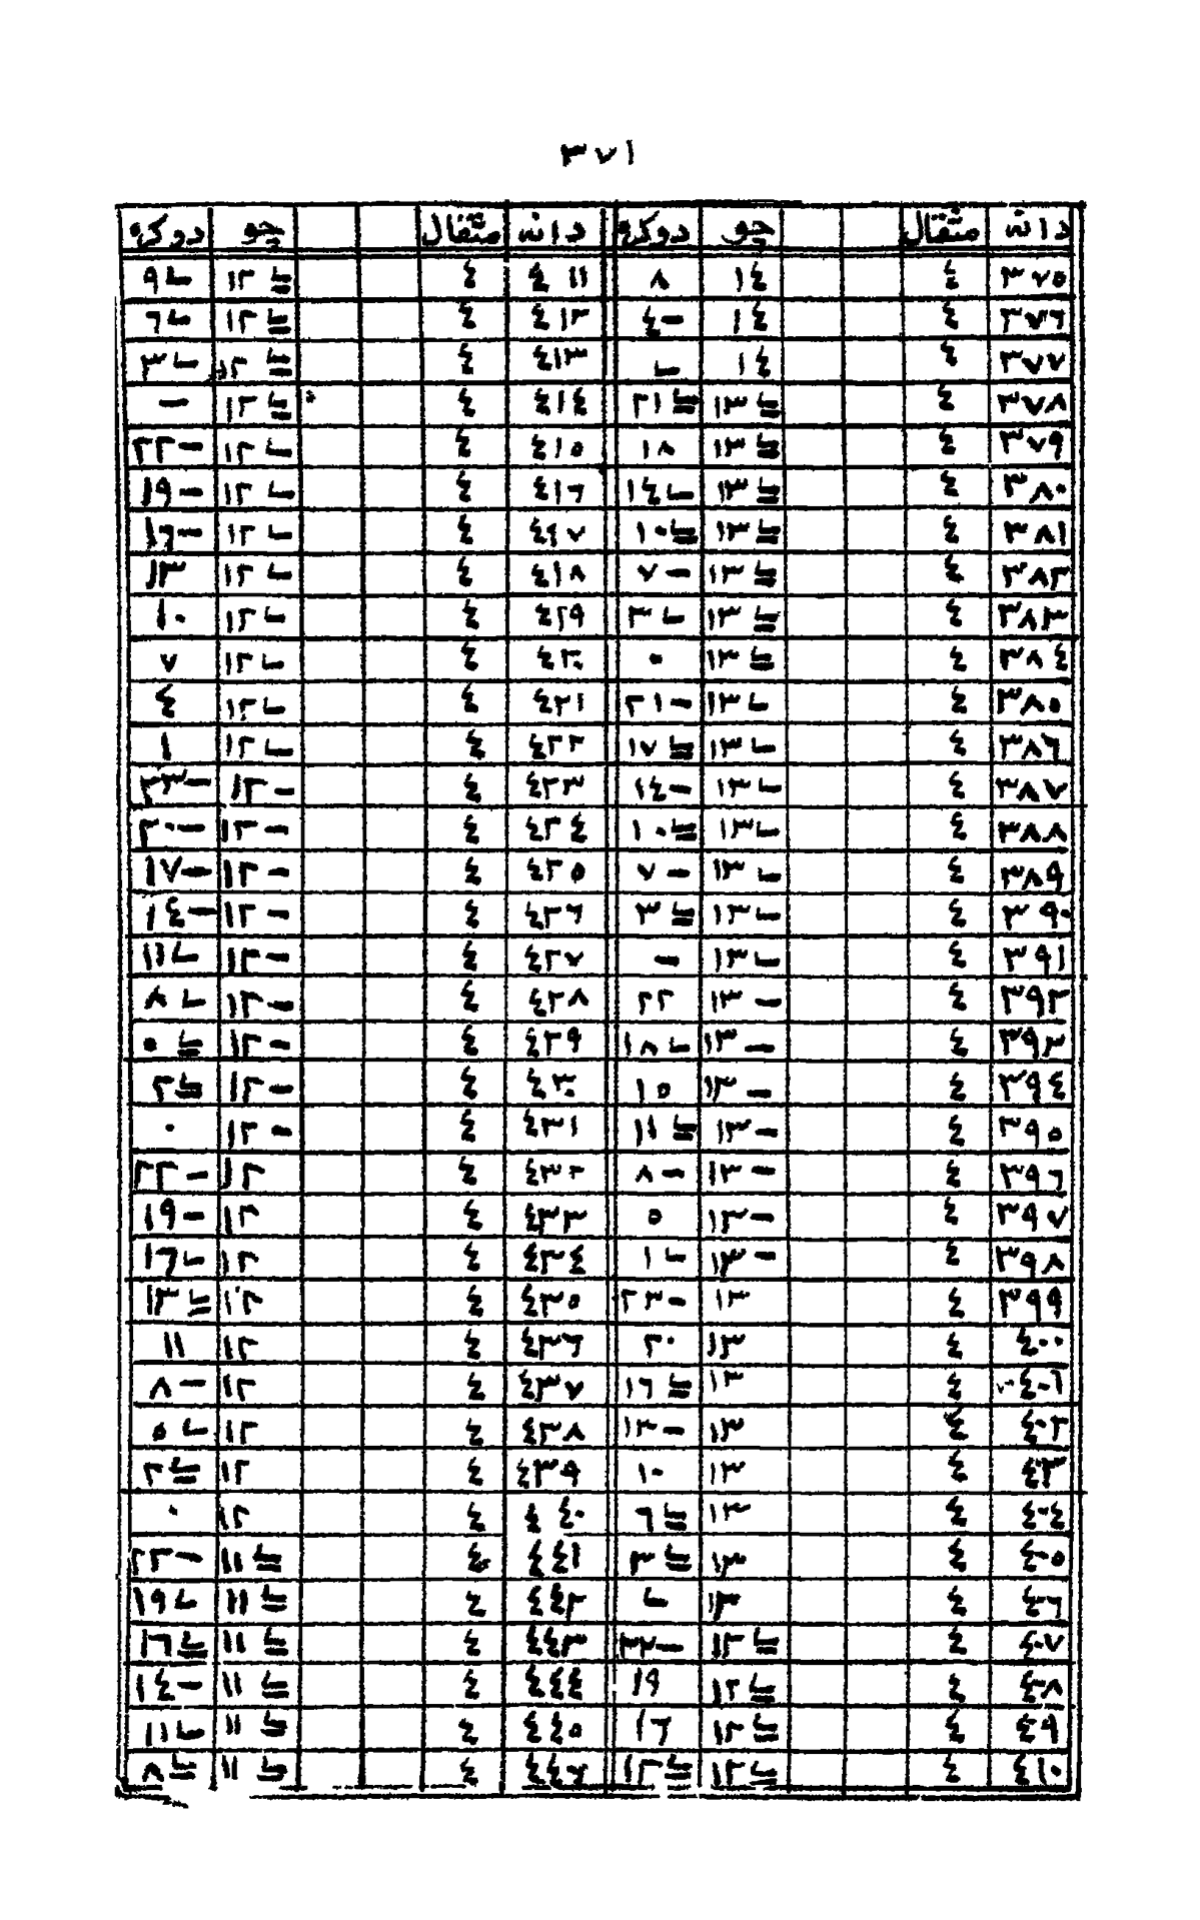 ٣٧١
دانه مثقال جو دوکه دانه مثقال جو دوکه
٣٧٥ ٤ ١٤ ٨ ٤١١ ٤ ١٢ ٩
٣٧٦ ٤ ١٤ ٤- ٤١٢ ٤ ١٢ ٦
٣٧٧ ٤ ١٤ ٤١٣ ٤ ١٢ ٣
٣٧٨ ٤ ١٣ ٢١ ٤١٤ ٤ ١٢ -
٣٧٩ ٤ ١٣ ١٨ ٤١٥ ٤ ١٢ ٢٢-
٣٨٠ ٤ ١٣ ١٤ ٤١٦ ٤ ١٢ ١٩-
٣٨١ ٤ ١٣ ١٠ ٤١٧ ٤ ١٢ ١٦-
٣٨٢ ٤ ١٣ ٧- ٤١٨ ٤ ١٢ ١٣
٣٨٣ ٤ ١٣ ٣ ٤١٩ ٤ ١٢ ١٠
٣٨٤ ٤ ١٣ ٠ ٤٢٠ ٤ ١٢ ٧
٣٨٥ ٤ ١٣ ٢١- ٤٢١ ٤ ١٢ ٤
٣٨٦ ٤ ١٣ ١٧ ٤٢٢ ٤ ١٢ ١
٣٨٧ ٤ ١٣ ١٤- ٤٢٣ ٤ ١٢- ٢٣-
٣٨٨ ٤ ١٣ ١٠ ٤٢٤ ٤ ١٢- ٢٠-
٣٨٩ ٤ ١٣ ٧- ٤٢٥ ٤ ١٢- ١٧-
٣٩٠ ٤ ١٣ ٣ ٤٢٦ ٤ ١٢- ١٤-
٣٩١ ٤ ١٣ - ٤٢٧ ٤ ١٢- ١١
٣٩٢ ٤ ١٣- ٢٢ ٤٢٨ ٤ ١٢- ٨
٣٩٣ ٤ ١٣- ١٨ ٤٢٩ ٤ ١٢- ٥
٣٩٤ ٤ ١٣- ١٥ ٤٣٠ ٤ ١٢- ٢
٣٩٥ ٤ ١٣- ١١ ٤٣١ ٤ ١٢- ٠
٣٩٦ ٤ ١٣- ٨- ٤٣٢ ٤ ١٢ ٢٢-
٣٩٧ ٤ ١٣- ٥ ٤٣٣ ٤ ١٢ ١٩-
٣٩٨ ٤ ١٣- ١ ٤٣٤ ٤ ١٢ ١٦
٣٩٩ ٤ ١٣ ٢٣- ٤٣٥ ٤ ١٢ ١٣
٤٠٠ ٤ ١٣ ٢٠ ٤٣٦ ٤ ١٢ ١١
٤٠١ ٤ ١٣ ١٦ ٤٣٧ ٤ ١٢ ٨-
٤٠٢ ٤ ١٣ ١٣- ٤٣٨ ٤ ١٢ ٥
٤٠٣ ٤ ١٣ ١٠ ٤٣٩ ٤ ١٢ ٢
٤٠٤ ٤ ١٣ ٦ ٤٤٠ ٤ ١٢ ٠
٤٠٥ ٤ ١٣ ٣ ٤٤١ ٤ ١١ ٢٢-
٤٠٦ ٤ ١٣ ٤٤٢ ٤ ١١ ١٩
٤٠٧ ٤ ١٢ ٢٢- ٤٤٣ ٤ ١١ ١٦
٤٠٨ ٤ ١٢ ١٩ ٤٤٤ ٤ ١١ ١٤-
٤٠٩ ٤ ١٢ ١٦ ٤٤٥ ٤ ١١ ١١
٤١٠ ٤ ١٢ ١٢ ٤٤٦ ٤ ١١ ٨